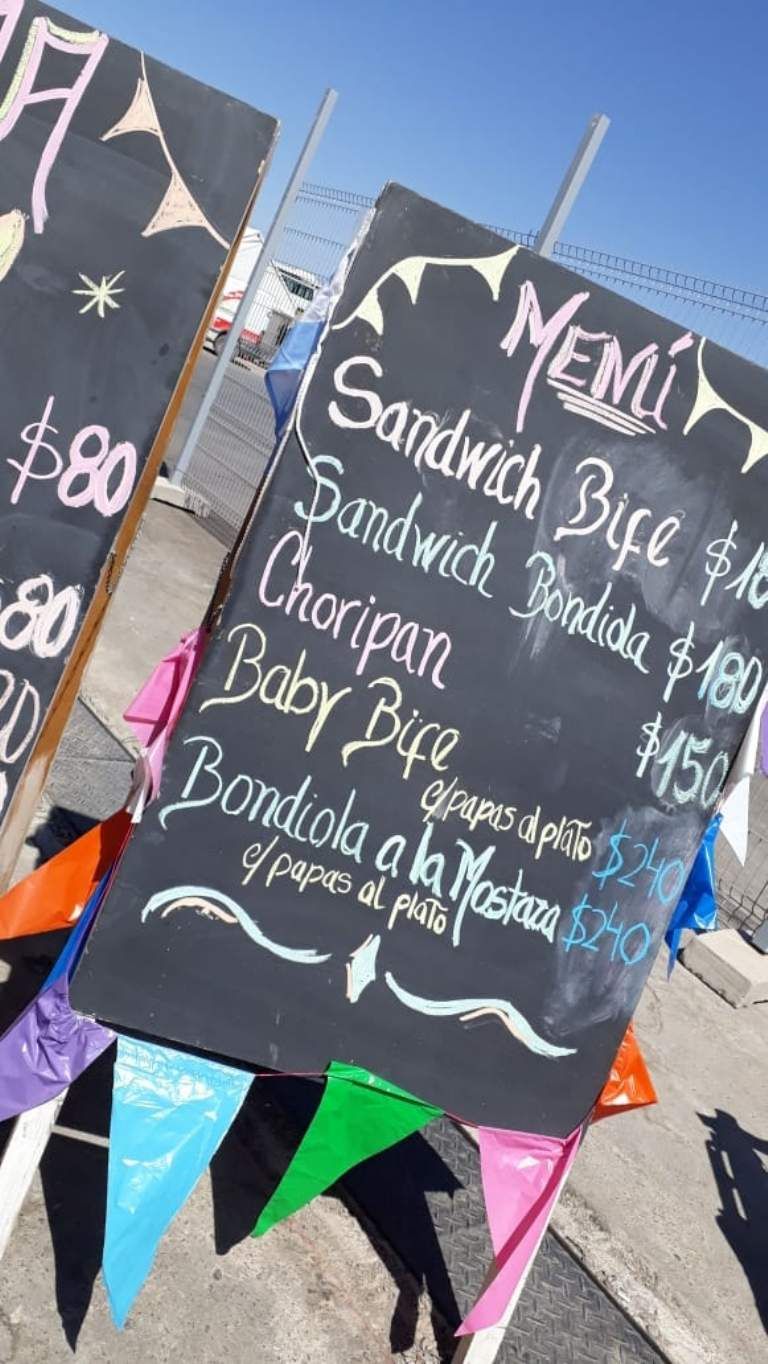 $80
80
MENÚ
Sandwich Bife
Sandwich Bondiola $180
Choripan $150
Baby Bife
c/papas al plato $240
Bondiola a la Mostaza $240
c/papas al plato